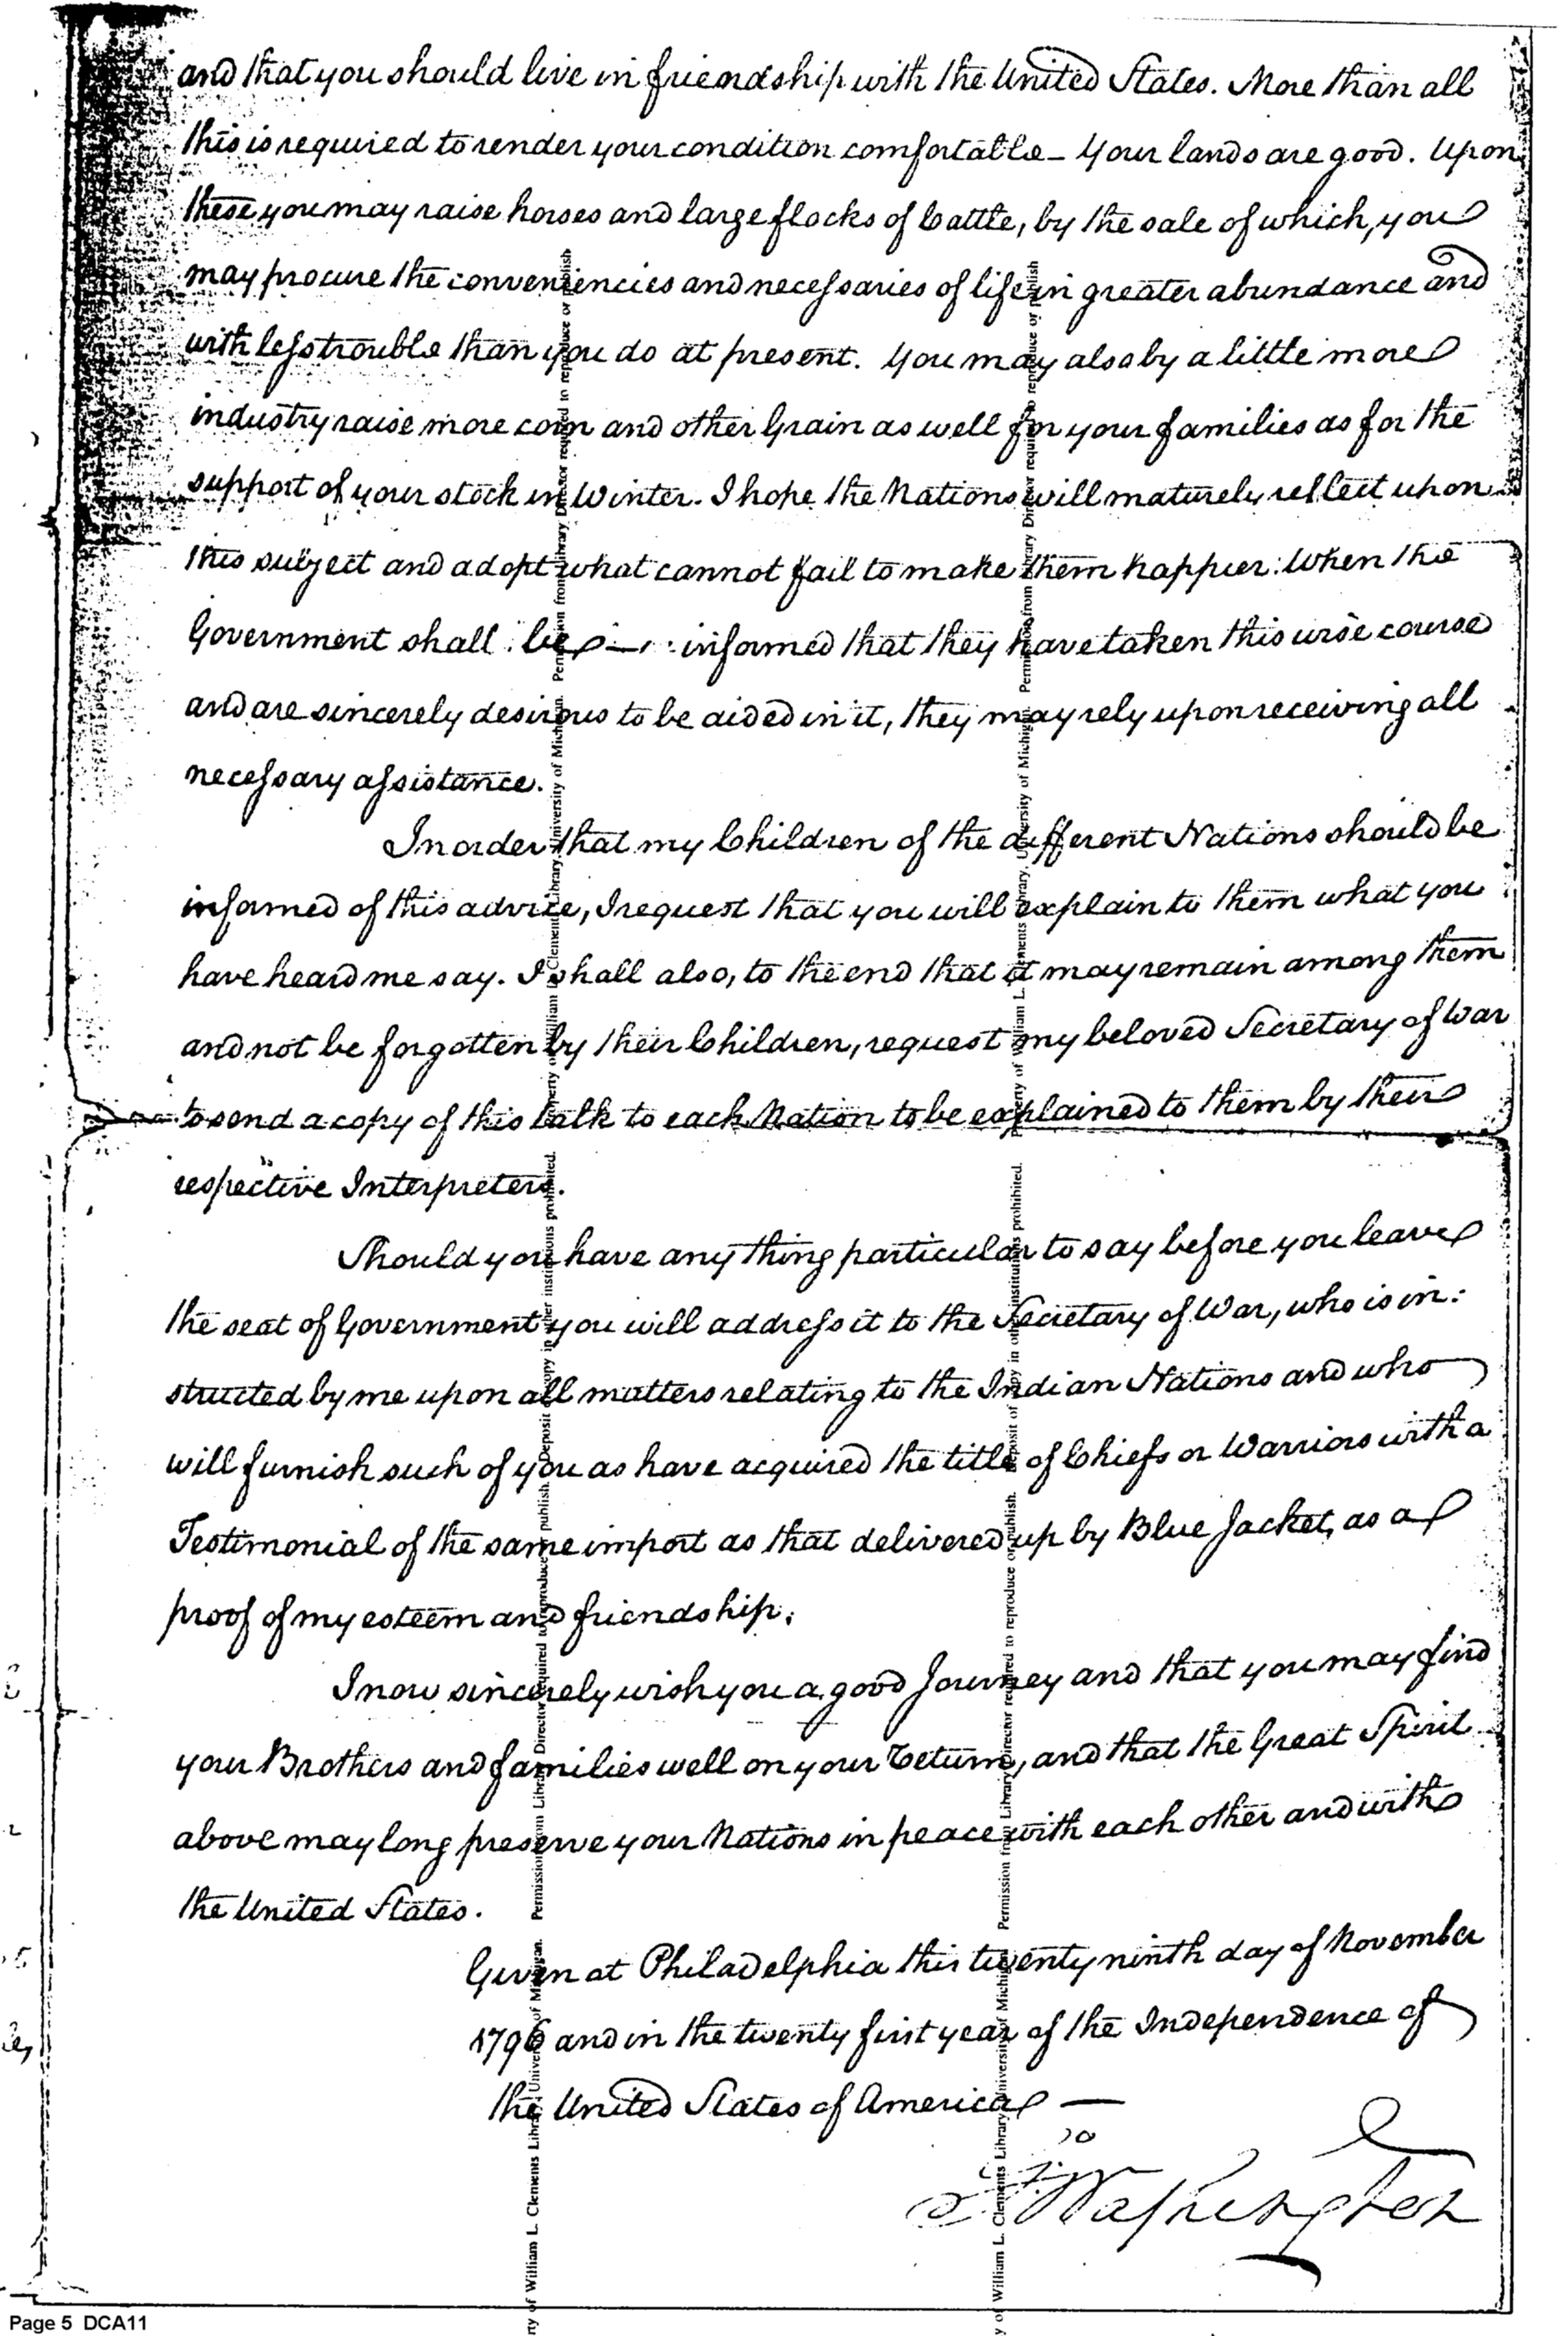 and that you should live in friendship with the United States. More than all
this is required to render your condition comfortable – Your lands are good. Upon
these you may raise horses and large flocks of Cattle, by the sale of which, you
may procure the conveniencies and necessaries of life in greater abundance and
with less trouble than you do at present. You may also by a little more
industry raise more corn and other Grain as well for your families as for the
support of your stock in Winter. I hope the Nations will maturely reflect upon
this subject and adopt what cannot fail to make them happier: When the
Government shall be informed that they have taken this wise course
and are sincerely desirous to be aided in it, they may rely upon receiving all
necessary assistance.
In order that my Children of the different Nations should be
informed of this advice, I request that you will explain to them what you
have heard me say. I shall also, to the end that it may remain among them
and not be forgotten by their Children, request my beloved Secretary of War
to send a copy of this talk to each Nation to be explained to them by their
respective Interpreters.
Should you have any thing particular to say before you leave
the seat of Government you will address it to the Secretary of War, who is in:
structed by me upon all matters relating to the Indian Nations and who
will furnish such of you as have acquired the title of Chiefs or Warriors with a
Testimonial of the same import as that delivered up by Blue Jacket, as a
proof of my esteem and friendship.
I now sincerely wish you a good Journey and that you may find
your Brothers and families well on your Return, and that the Great Spirit
above may long preserve your Nations in peace with each other and with
the United States.
Given at Philadelphia this twenty ninth day of November
1796 and in the twenty first year of the Independence of
the United States of America —
G: Washington
rty of William L. Clements Library, University of Michigan. Permission from Library Director required to reproduce or publish. Deposit of copy in other institutions prohibited.
Property of William L. Clements Library, University of Michigan. Permission from Library Director required to reproduce or publish
y of William L. Clements Library, University of Michigan. Permission from Library Director required to reproduce or publish. Deposit of copy in other institutions prohibited.
Property of William L. Clements Library, University of Michigan. Permission from Library Director required to reproduce or publish
Page 5 DCA11